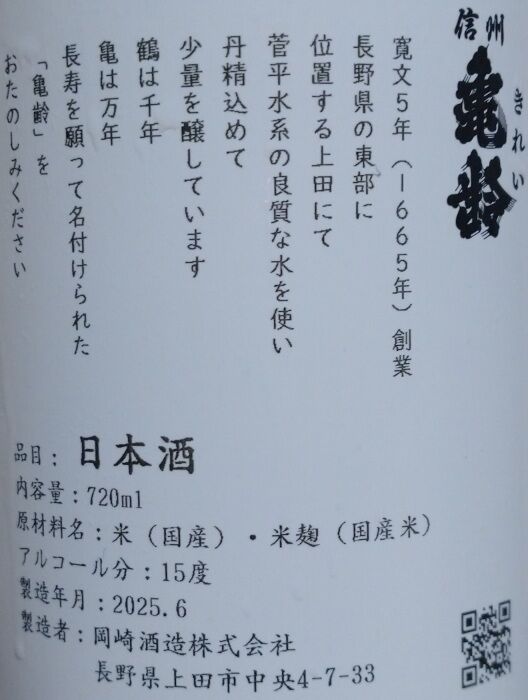 信州
亀齢
きれい
寛文5年（1665年）創業
長野県の東部に
位置する上田にて
菅平水系の良質な水を使い
丹精込めて
少量を醸しています
鶴は千年
亀は万年
長寿を願って名付けられた
「亀齢」を
おたのしみください
品目：日本酒
内容量：720ml
原材料名：米（国産）・米麹（国産米）
アルコール分：15度
製造年月：2025.6
製造者：岡崎酒造株式会社
長野県上田市中央4-7-33